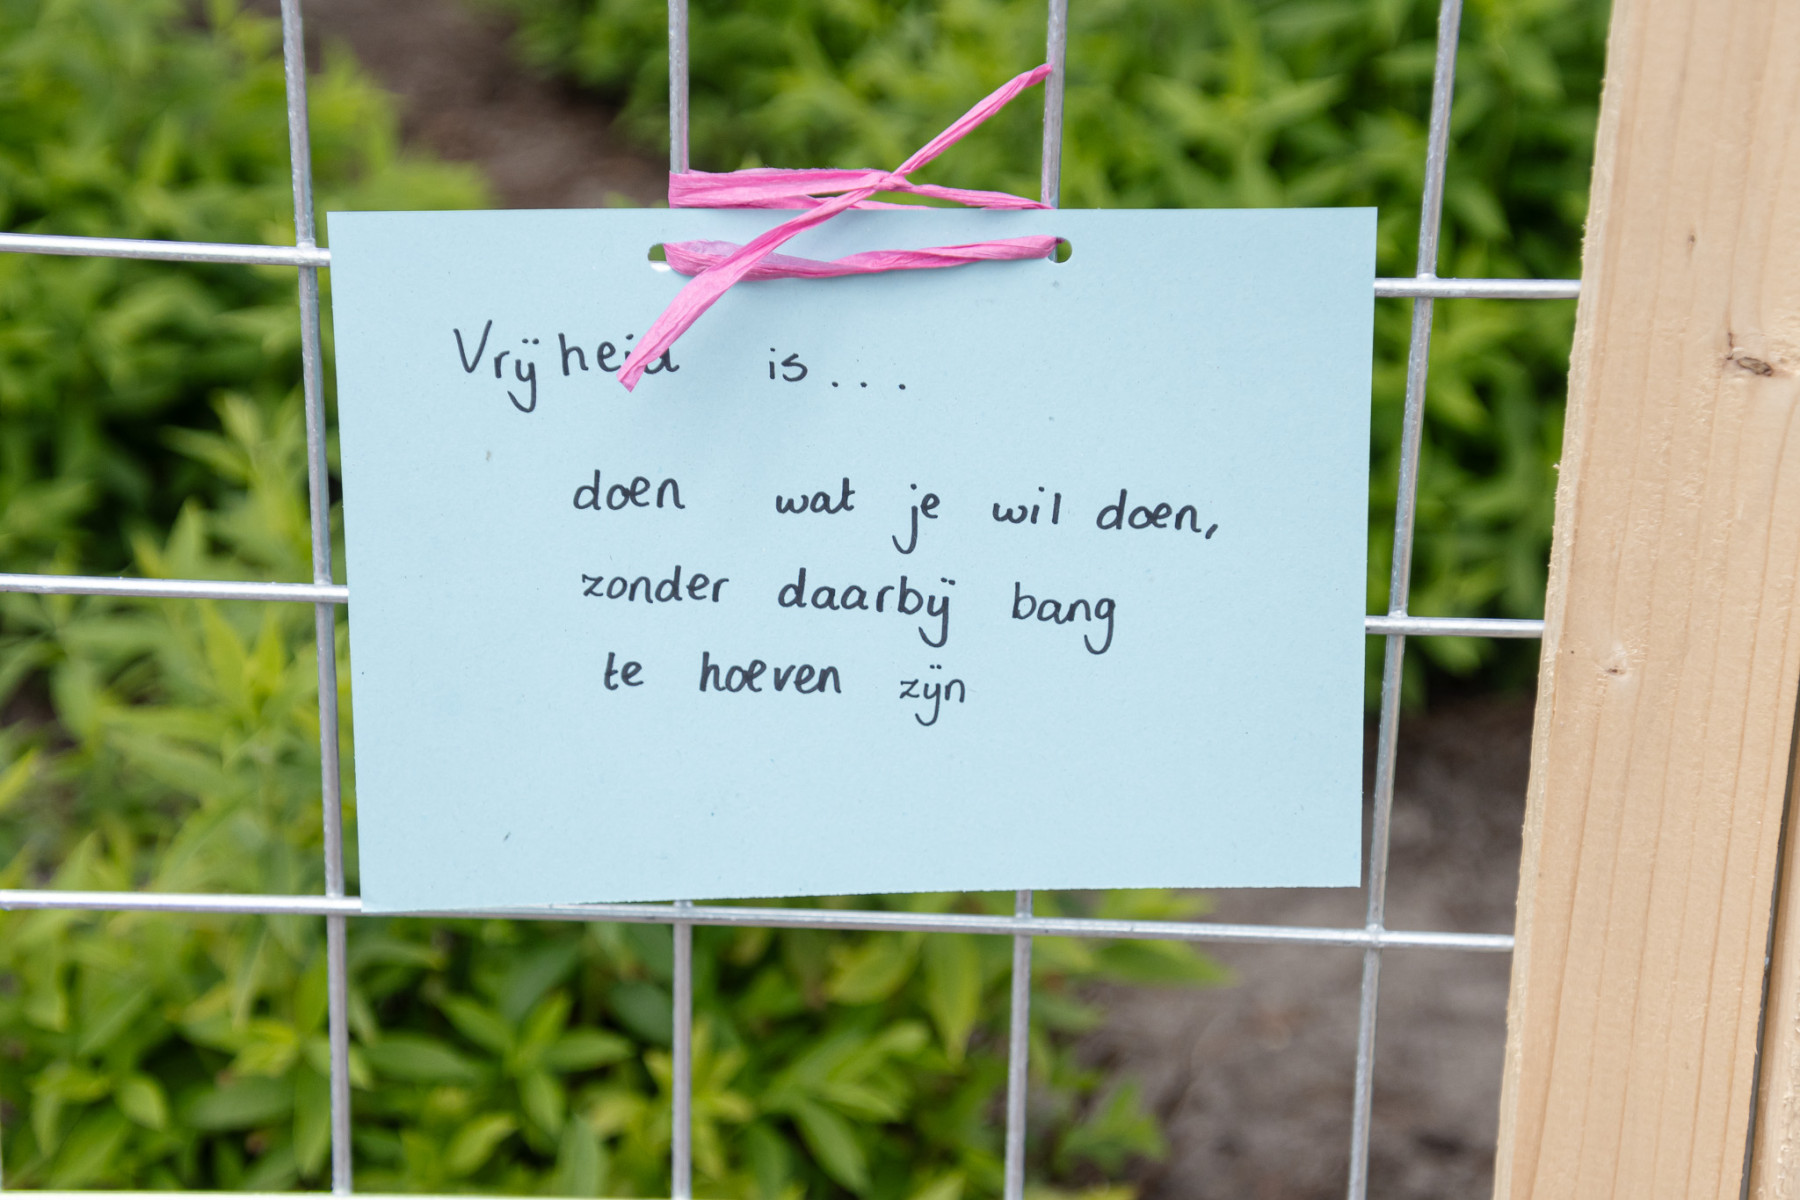 Vrijheid is...
doen wat je wil doen,
zonder daarbij bang
te hoeven zijn